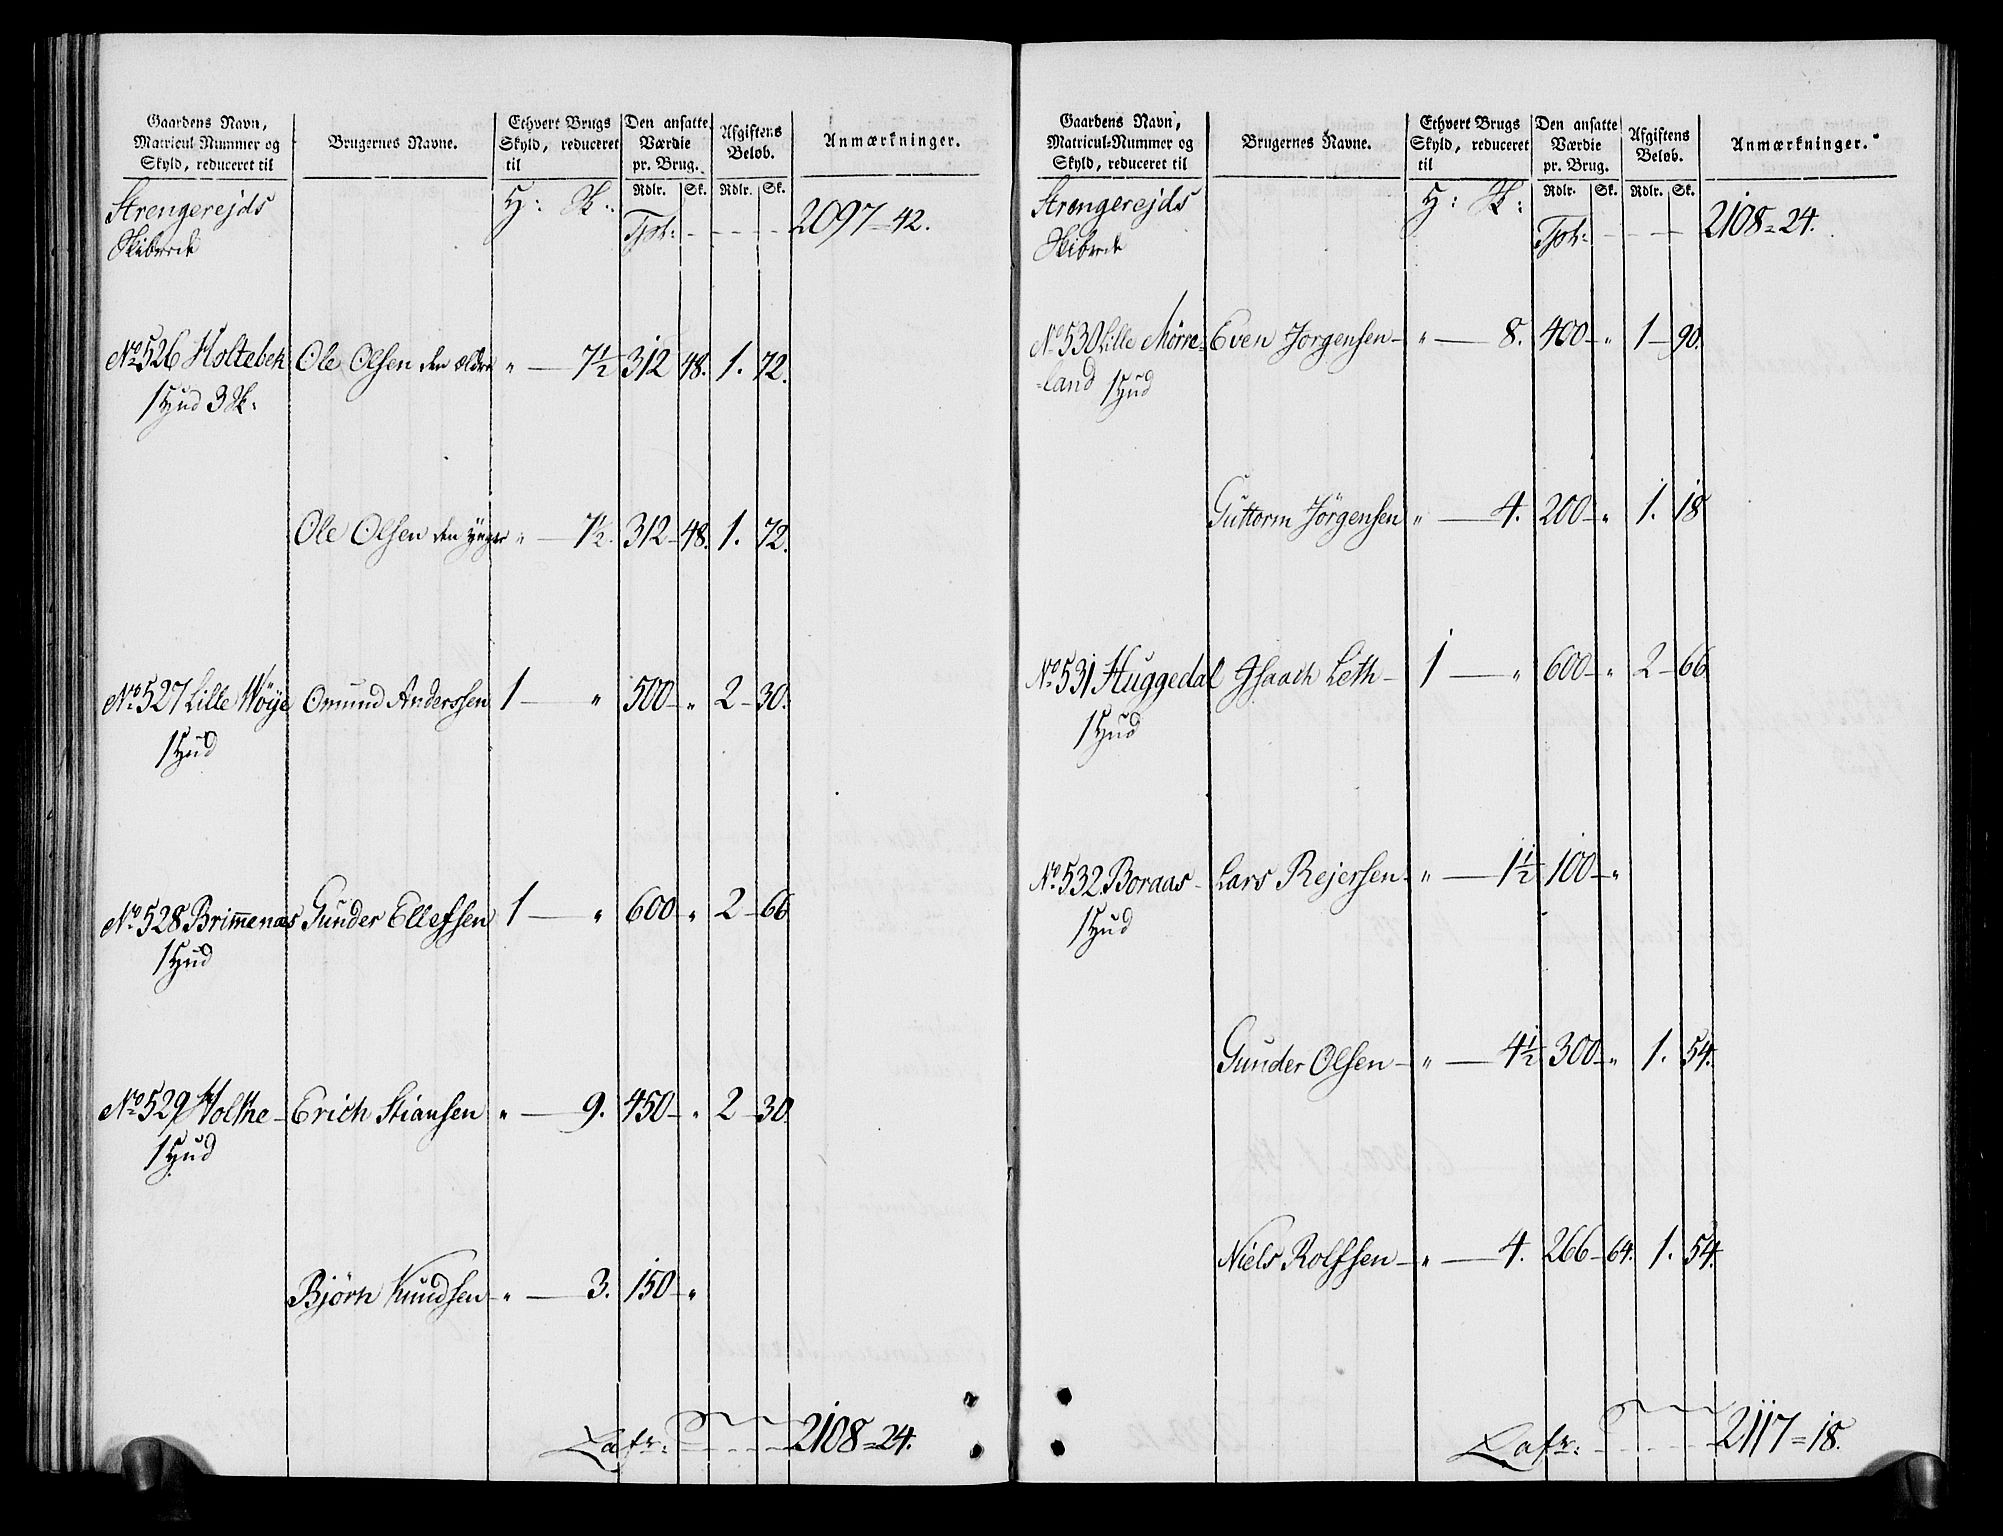 Gaardens Navn, Matricul-Nummer og Skyld, reduceret til | Brugernes Navne. | Ethvert Brugs Skyld, reduceret til | Den ansatte Værdie pr. Brug. | Afgiftens Beløb. | Anmærkninger.
Rdlr. Sk. Rdlr. Sk.
Strengerejds H: Sk:
Skibrede Tpt: 2097 = 42.
No 526 Holtebek Ole Olsen den ældre " — 7½ 312 48. 1. 72.
1 Hud 3 Sk:
Ole Olsen den yngre " — 7½. 312 — 48. 1. 72.
No 527 Lille Wöye Omund Anderssen 1 — " 500 — " 2 — 30.
1 Hud
No 528 Brimmenæs Gunder Ellefsen 1 — " 600 — " 2 — 66
1 Hud
No 529 Holthe Erich Stiansen " — 9. 450 — " 2 — 30.
1 Hud
Bjørn Knudsen " — 3. 150 — "
Lafr: 2108 = 24.
Gaardens Navn, Matricul-Nummer og Skyld, reduceret til | Brugernes Navne. | Ethvert Brugs Skyld, reduceret til | Den ansatte Værdie pr. Brug. | Afgiftens Beløb. | Anmærkninger.
Rdlr. Sk. Rdlr. Sk.
Strengerejds H: Sk:
Skibrede Tpt: 2108 = 24.
No 530 Lille Mörre- Even Jorgensen — " — 8. 400 — " 1 — 90.
-land 1 Hud
Guttorm Jörgensen " — 4. 200 — " 1. 18
No 531 Huggedal Isaach Leth — 1 — " 600 — " 2 — 66
1 Hud
No 532 Boraas — Lars Rejersen — " — 1½ 100 — "
1 Hud
Gunder Olsen — " — 4½ 300 — " 1. 54.
Niels Rolfsen — " — 4. 266 — 64. 1. 54.
Lafr: 2117 = 18.